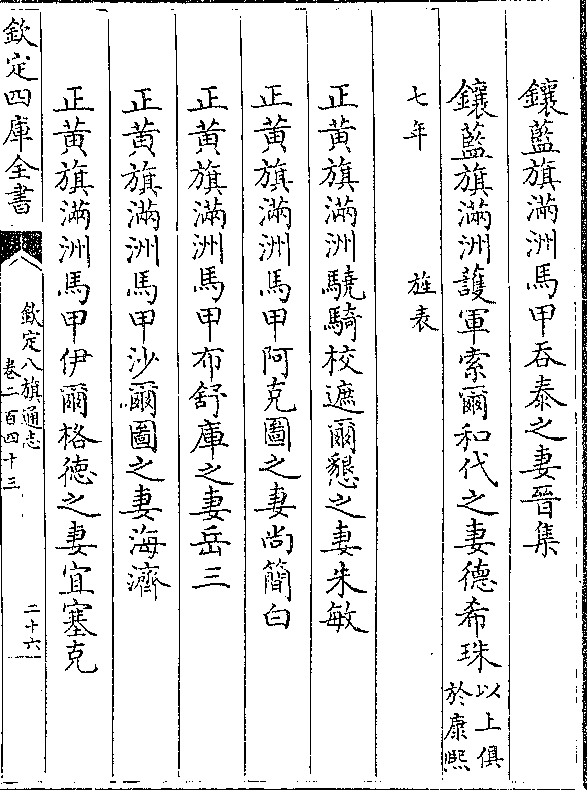 鑲藍旗滿洲馬甲吞泰之妻晉集
鑲藍旗滿洲護軍索爾和代之妻德希珠以上俱
於康熙
七年　旌表
正黃旗滿洲驍騎校遮爾懇之妻朱敏
正黃旗滿洲馬甲阿克圖之妻尚簡白
正黃旗滿洲馬甲布舒庫之妻岳三
正黃旗滿洲馬甲沙爾圖之妻海濟
正黃旗滿洲馬甲伊爾格德之妻宜塞克
欽定四庫全書
欽定八旗通志
卷二百四十三
二十六